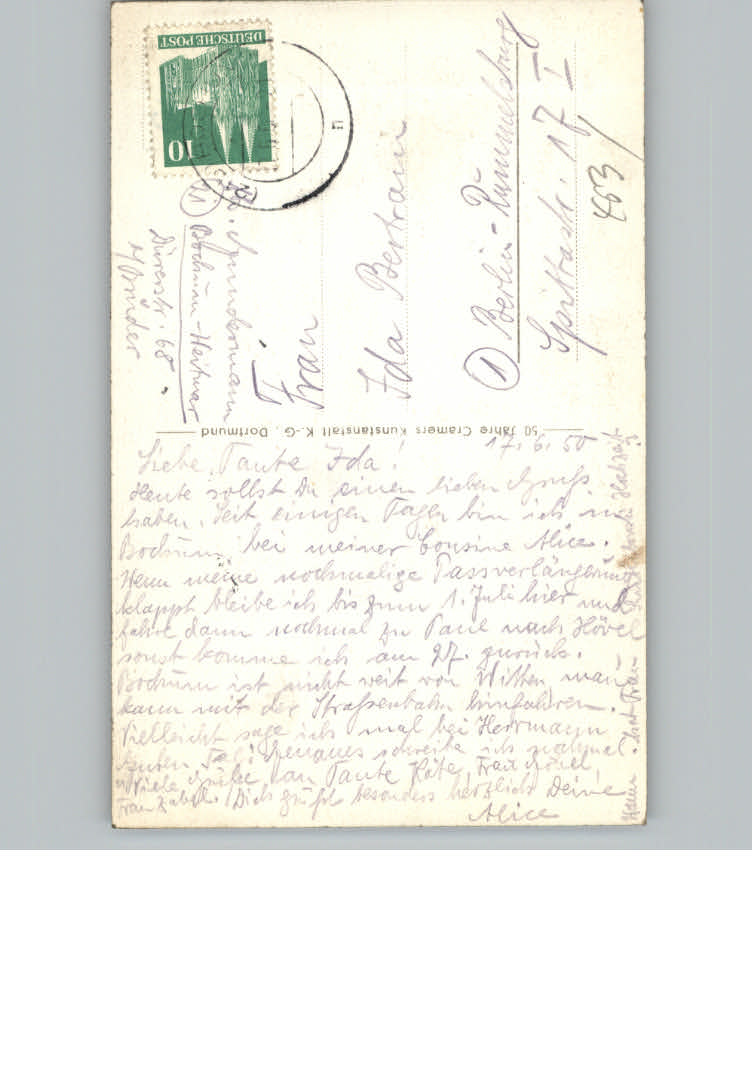 DEUTSCHE POST
10
Bruder
Dürerstr. 68
(21) Bochum-Weitmar
Frau
Ida Bertram
(1) Berlin-Rummelsburg
Spittastr. 17 I
463
50 Jahre Cramers Kunstanstalt K.-G., Dortmund
17.6.50
Liebe Tante Ida!
Heute sollst Du einen lieben Gruß
haben. Seit einigen Tagen bin ich in
Bochum bei meiner Cousine Alice.
Wenn meine nochmalige Passverlängerung
klappt bleibe ich bis zum 1. Juli hier und
fahre dann nochmal zu Paul nach Hövel
sonst komme ich am 27. zurück.
Bochum ist nicht weit von Witten, man
kann mit der Straßenbahn hinfahren.
Vielleicht sage ich mal bei Herrmann
guten Tag. Genaues schreibe ich nochmal.
Viele Grüße an Tante Käte, Frau
Frau Dich grüßt besonders herzlich Deine
Alice
Wann hat Frau Hochzeit